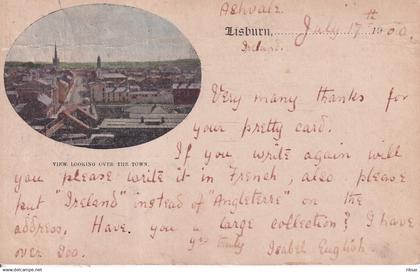 Ashvale
Lisburn, July 17th 1900.
Ireland.
Very many thanks for
your pretty card.
If you write again will
you please write it in French, also please
put "Ireland" instead of "Angleterre" on the
address. Have you a large collection? I have
over 200.
yrs truly Isabel English
VIEW LOOKING OVER THE TOWN.